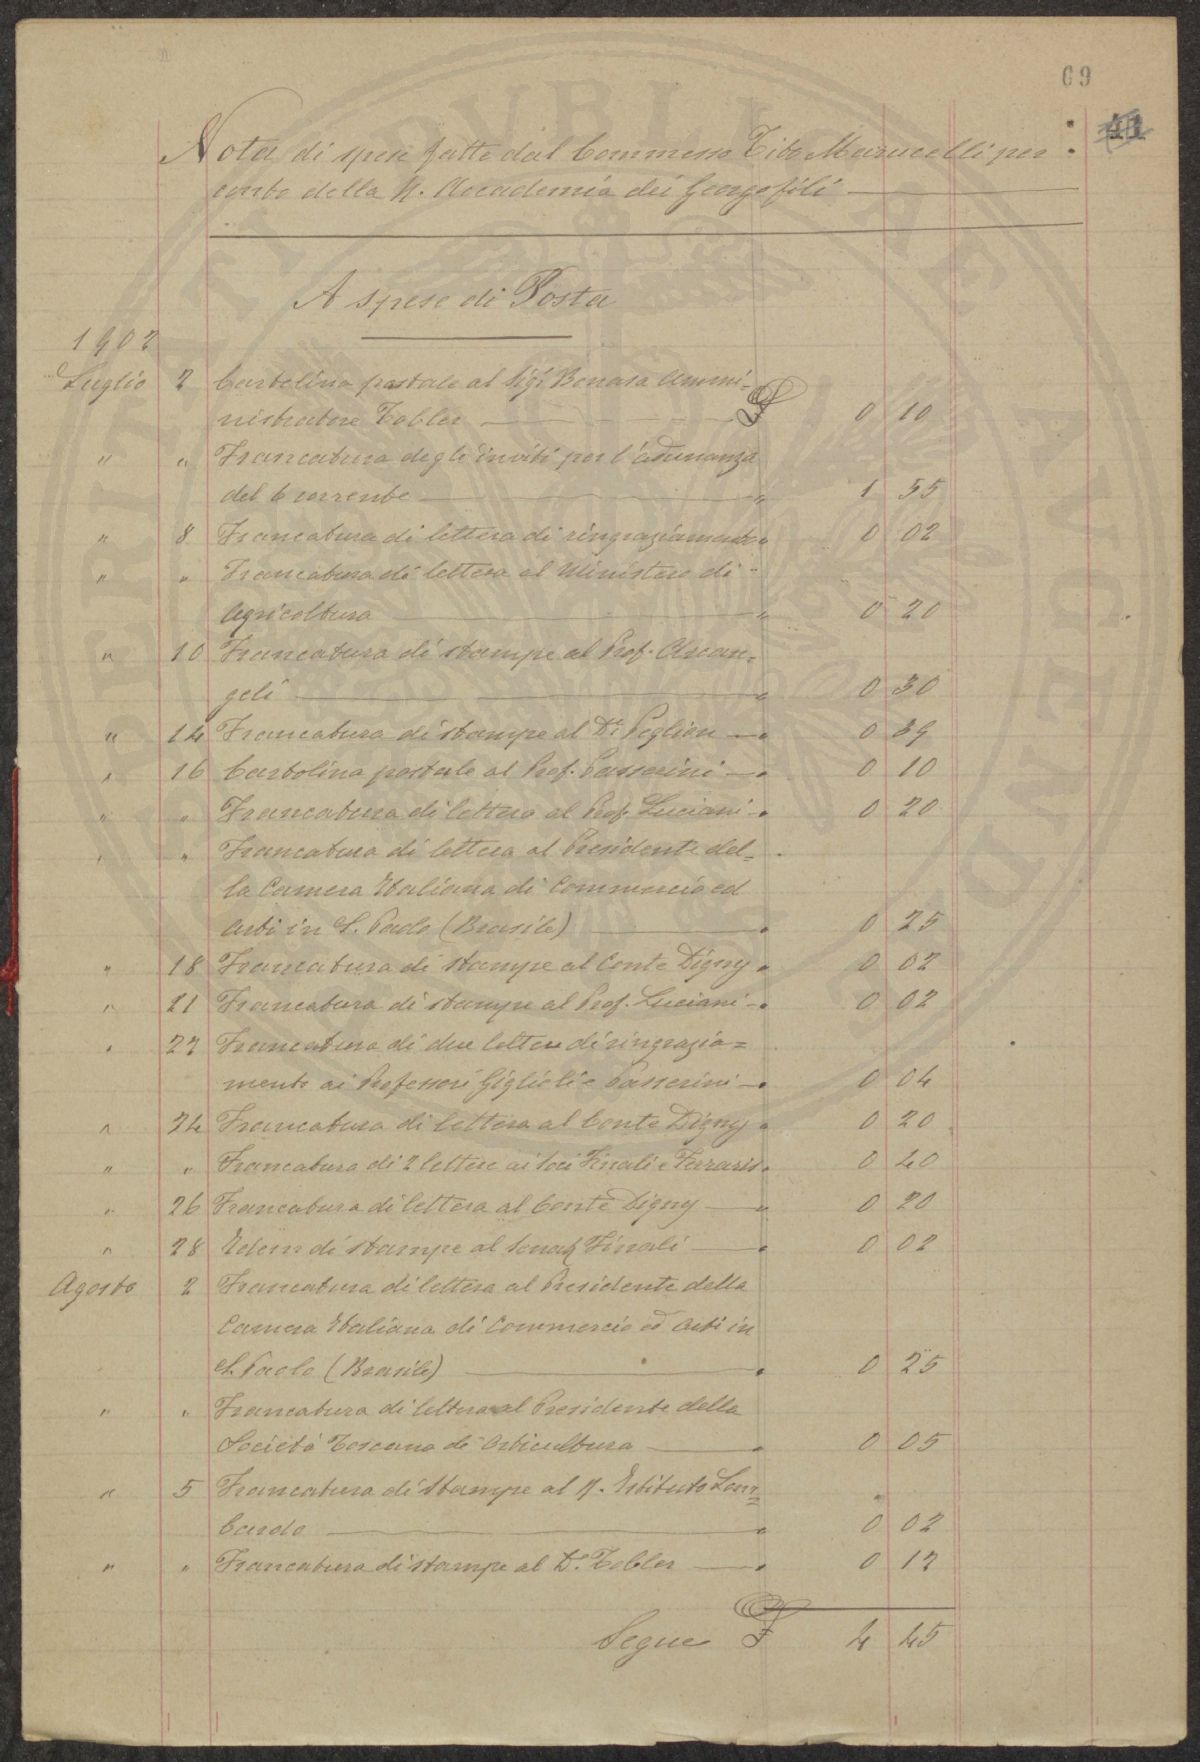 69
41
Nota di spese fatte dal Commesso Tito Marucelli per
conto della R. Accademia dei Georgofili
A spese di Posta
1902
Luglio 2 Cartolina postale al Sigr. Bonasa Ammi=
nistratore Tobler £ 0 10
" " Francatura degli inviti per l'adunanza
del 6 corrente " 1 55
" 8 Francatura di lettera di ringraziamento " 0 02
" " Francatura di lettera al Ministero di
Agricoltura " 0 20
" 10 Francatura di stampe al Prof. Arcan=
geli " 0 30
" 14 Francatura di stampe al Dr. Peglion " 0 39
" 16 Cartolina postale al Prof. Passerini " 0 10
" " Francatura di lettera al Prof. Luciani " 0 20
" " Francatura di lettera al Presidente del=
la Camera Italiana di Commercio ed
Arti in S. Paolo (Brasile) " 0 25
" 18 Francatura di stampe al Conte Digny " 0 02
" 21 Francatura di stampe al Prof. Luciani " 0 02
" 22 Francatura di due lettere di ringrazia=
mento ai Professori Giglioli e Passerini " 0 04
" 24 Francatura di lettera al Conte Digny " 0 20
" " Francatura di 2 lettere ai Soci Finali e Ferraris " 0 40
" 26 Francatura di lettera al Conte Digny " 0 20
" 28 Idem di stampe al Senat. Finali " 0 02
Agosto 2 Francatura di lettera al Presidente della
Camera Italiana di Commercio ed Arti in
S. Paolo (Brasile) " 0 25
" " Francatura di lettera al Presidente della
Società Toscana di Orticultura " 0 05
" 5 Francatura di stampe al R. Istituto Lom=
bardo " 0 02
" " Francatura di stampe al Dr. Tobler " 0 12
Segue £ 4 45